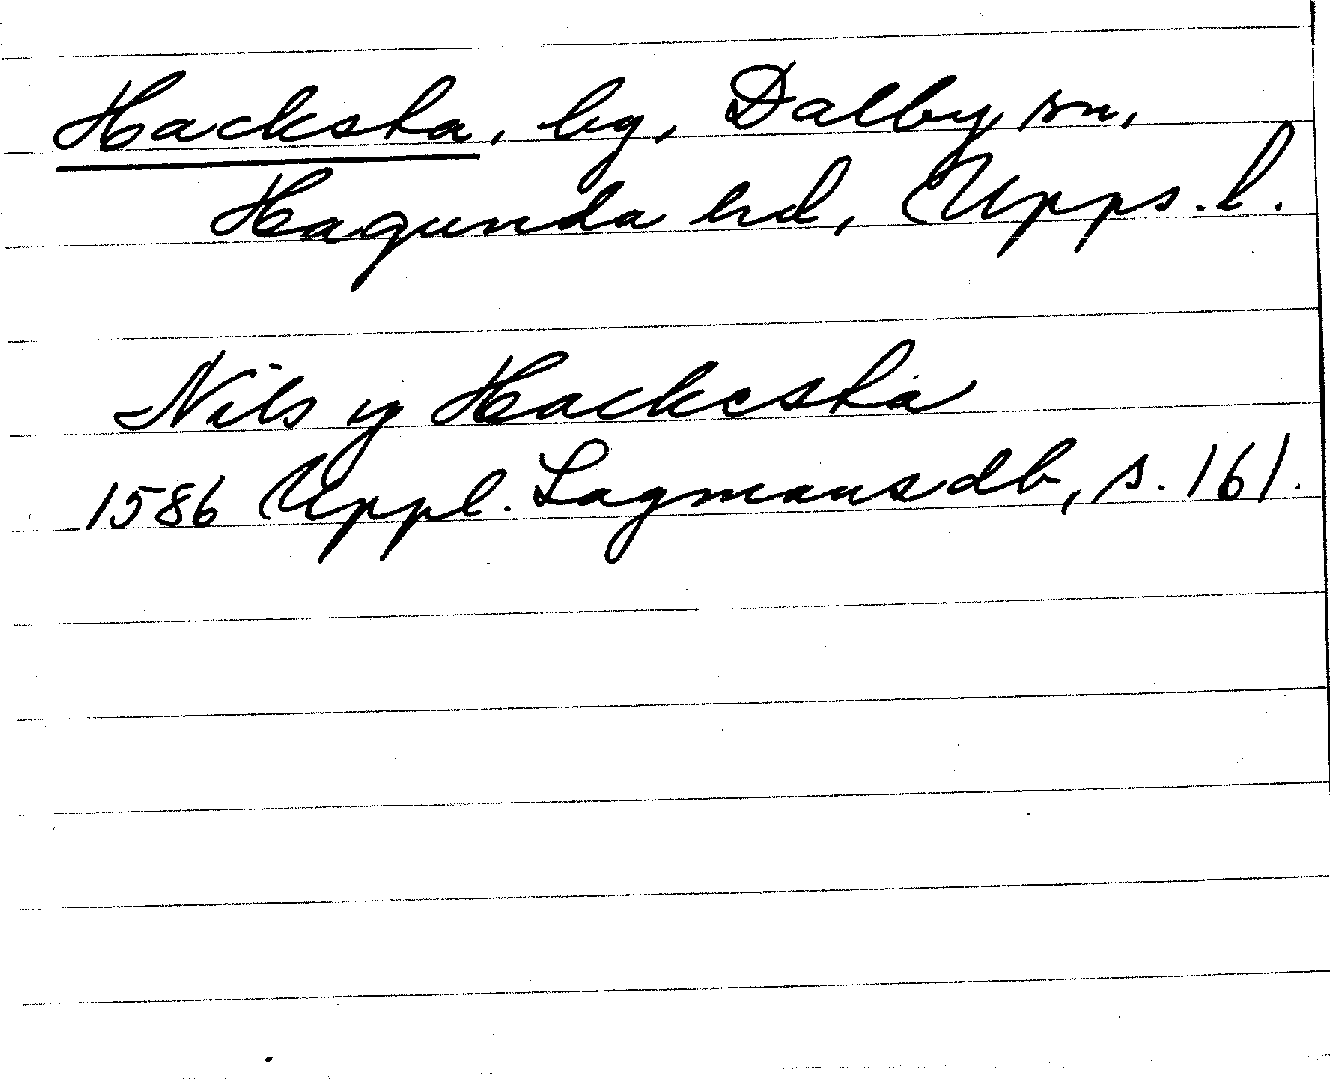 Hacksta, by, Dalby sn,
Hagunda hd, Upps. l.
Nils y Hackesta
1586 Uppl. Lagmansdb, s. 161.